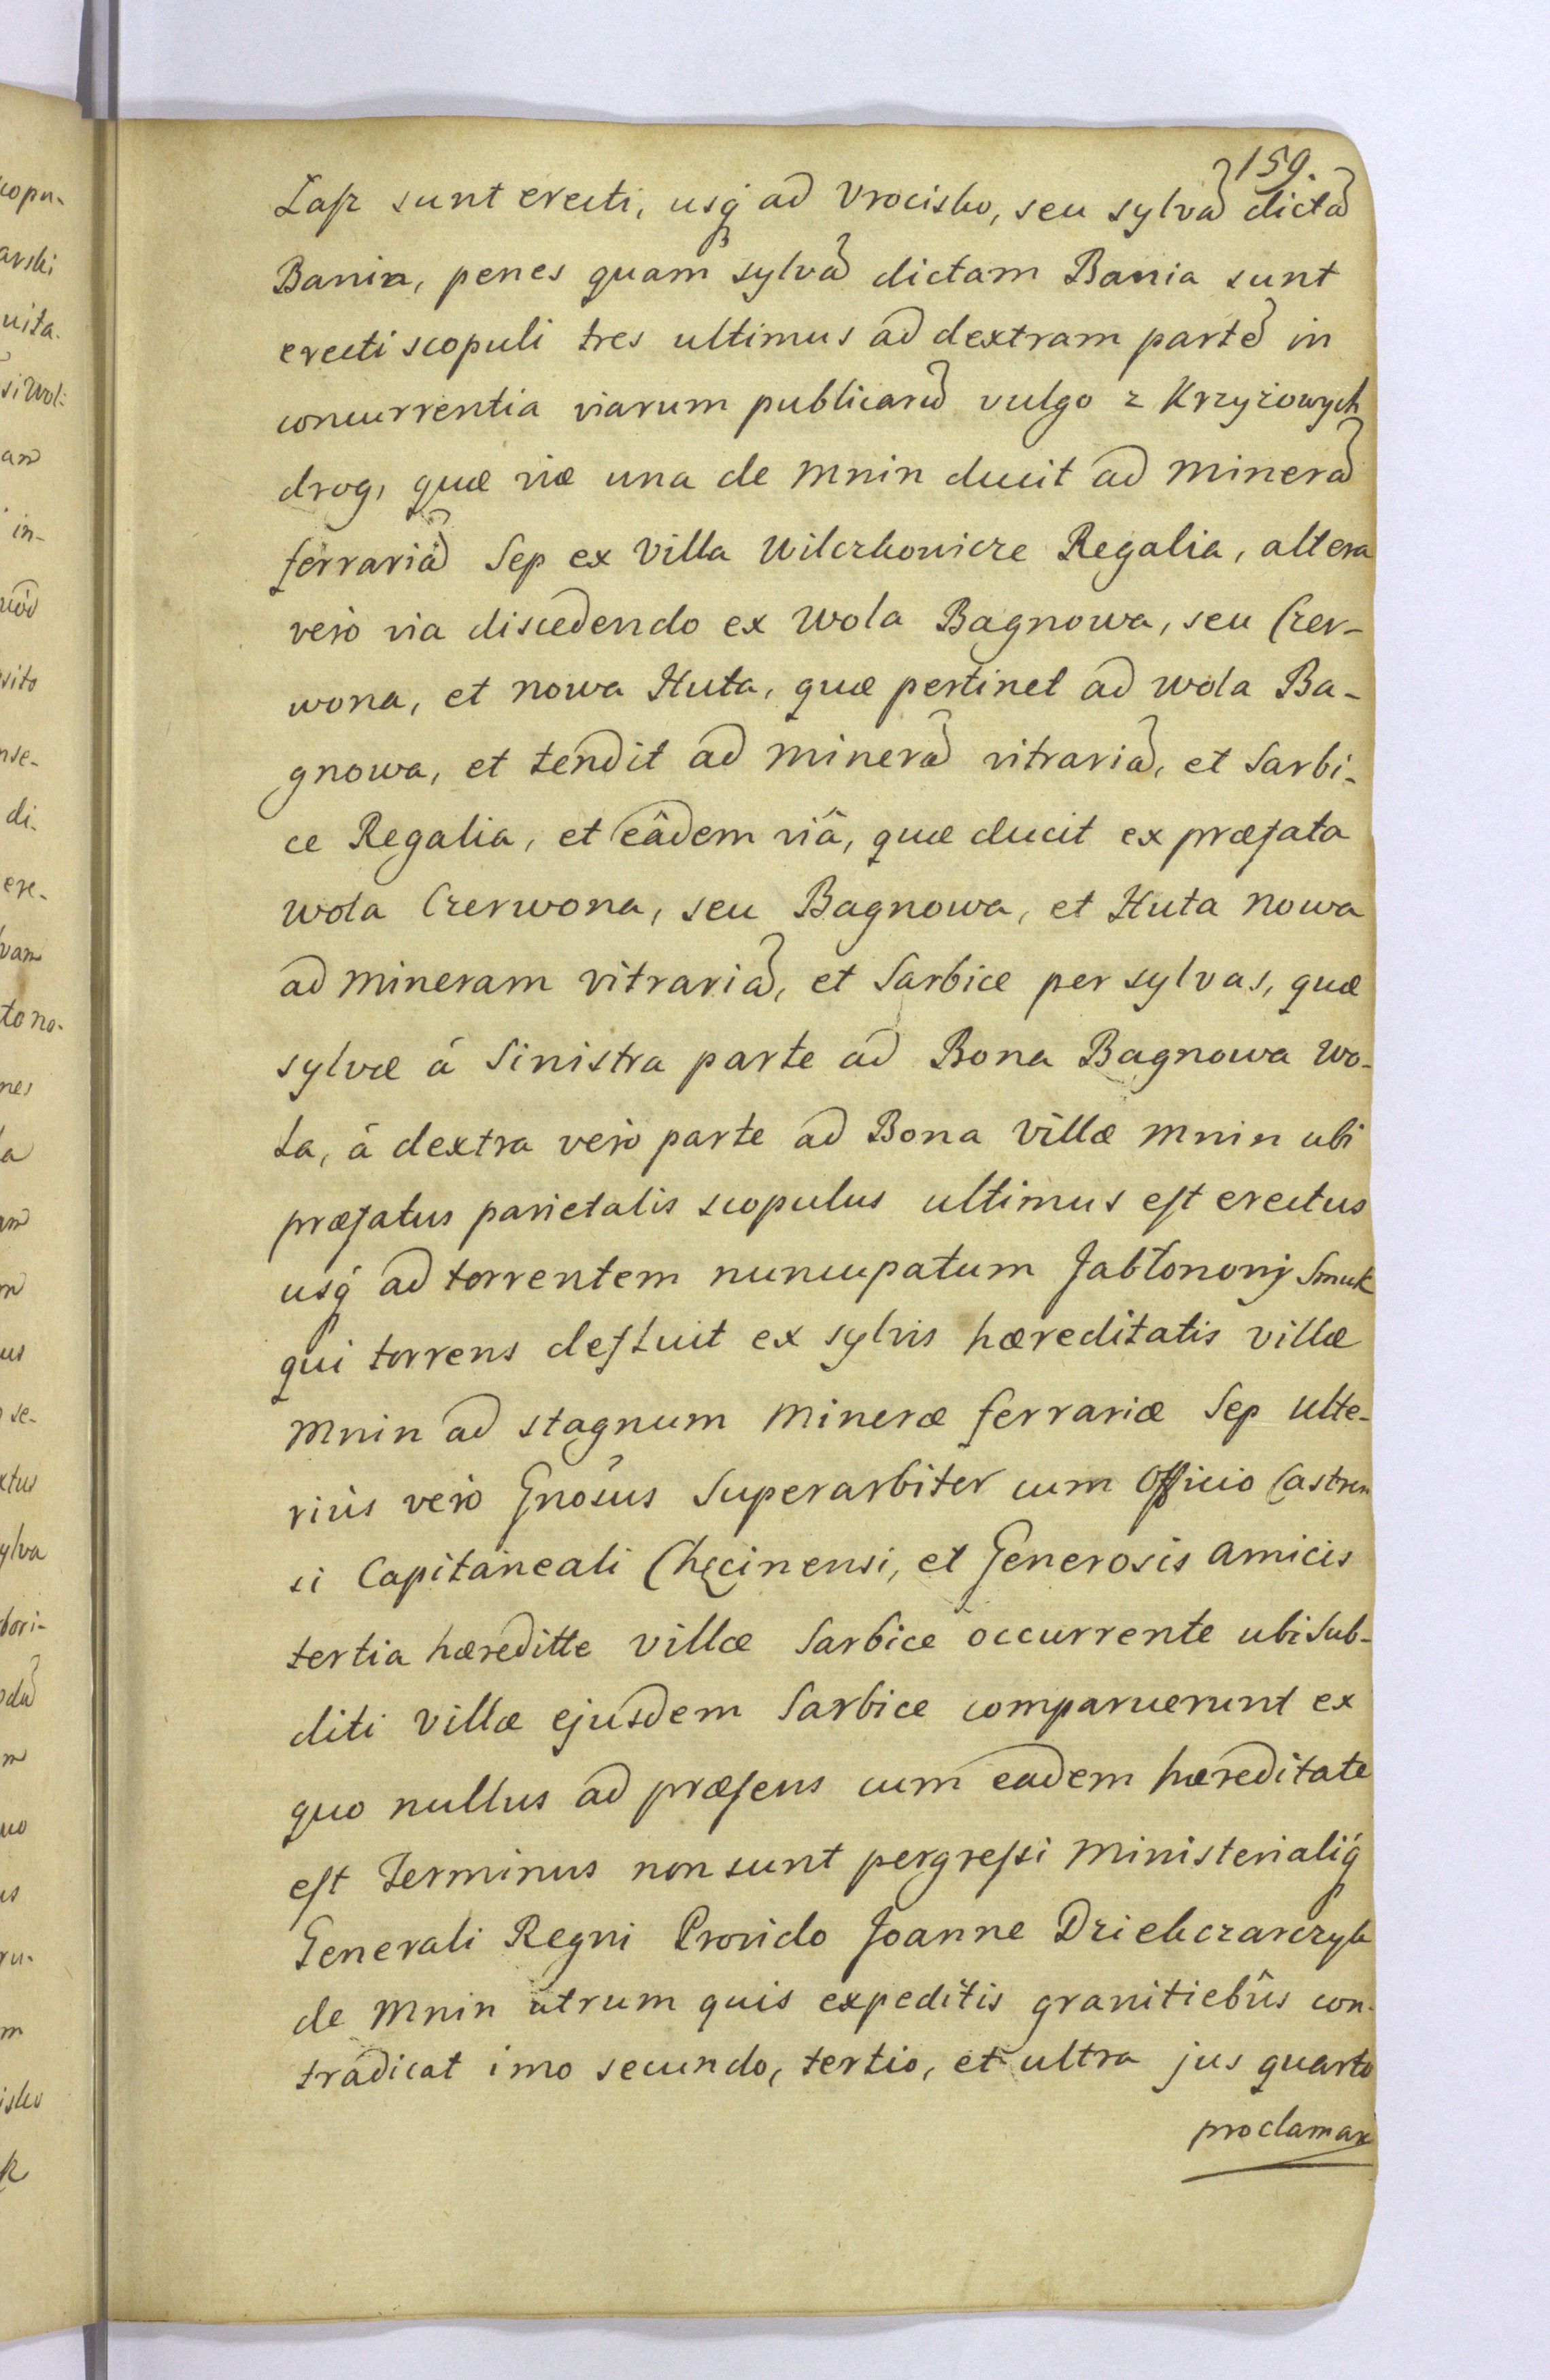 159.
Lasz sunt erecti, usq̃ ad Vrocisko, seu sylvã dictã
Bania, penes quam sylvã dictam Bania sunt
erecti scopuli tres ultimus ad dextram partẽ in
concurrentia viarum publicarũ vulgo z Krzyżowych
drog, quæ viæ una de Mnin ducit ad Minerã
ferrariã Sep ex Villa Wilczkowicze Regalia, altera
verò via discedendo ex Wola Bagnowa, seu Czer-
wona, et nowa Huta, quæ pertinet ad Wola Ba-
gnowa, et tendit ad Minerã vitrariã, et Sarbi-
ce Regalia, et eâdem viâ, quæ ducit ex præfata
Wola Czerwona, seu Bagnowa, et Huta Nowa
ad Mineram vitrariã, et Sarbice per sylvas, quæ
sylvæ á Sinistra parte ad Bona Bagnowa Wo-
la, á dextra verò parte ad Bona Villæ Mnin ubi
præfatus parietalis scopulus ultimus est erectus
usq̃ ad torrentem nuncupatum Jabłonowy Smuk
qui torrens defluit ex sylvis hæreditatis villæ
Mnin ad stagnum Mineræ ferrariæ Sep ulte-
riùs verò Gnosus Superarbiter cum Officio Castren
si Capitaneali Chęcinensi, et Generosis Amicis
tertia hæreditte villæ Sarbice occurrente ubi Sub-
diti Villæ ejusdem Sarbice comparuerunt ex
quo nullus ad præsens cum eadem hæreditate
est Terminus non sunt pergressi Ministerialiq̃
Generali Regni Provido Joanne Dziekczarczyk
de Mnin utrum quis expeditis granitiebûs con-
tradicat imo secundo, tertio, et ultra jus quarto
proclamar